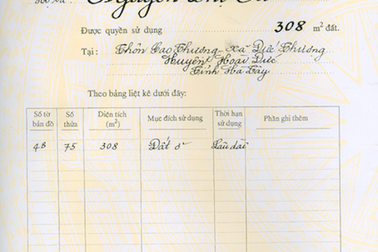 Nguyễn
Được quyền sử dụng 308 m² đất.
Tại : Thôn Cao Thượng - Xã Đức Thượng
Huyện Hoài Đức
Tỉnh Hà Tây
Theo bảng liệt kê dưới đây:
Số tờ bản đồ Số thửa Diện tích (m²) Mục đích sử dụng Thời hạn sử dụng Phần ghi thêm
48 75 308 Đất ở Lâu dài